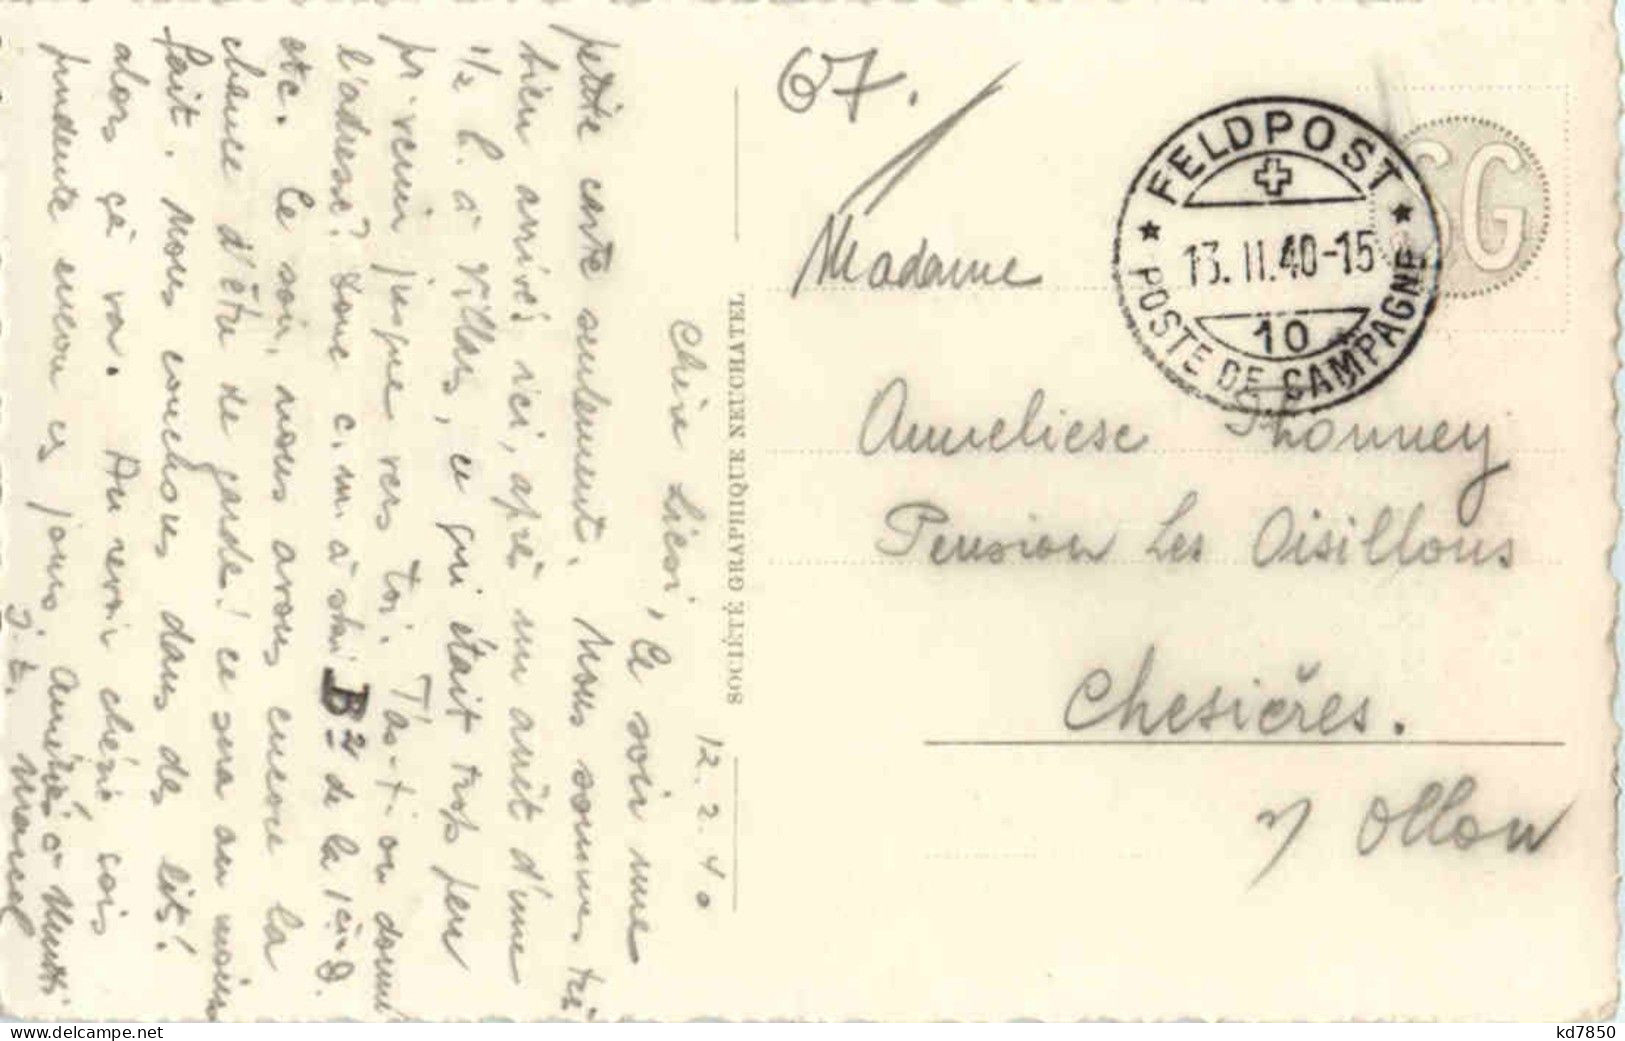 12.2.40
Chère Liesi, Ce soir une
petite carte seulement. Nous sommes très
bien arrivés ici, après un arrêt d'une
1/2 h. à Villars, ce qui était trop peu
pr. venir jusque vers toi. T'as-t-on donné
l'adresse? Donc c.m. à
B de la
etc. Ce soir, nous avons encore la
chance d'être de garde! ce sera au moins
fait. Nous couchons dans des lits!
alors çà va. Au revoir chérie sois
prudente encore ces jours, Amitiés à Mutti
Marcel
SOCIÉTÉ GRAPHIQUE NEUCHATEL
67.
FELDPOST
13.II.40-15
10
POSTE DE CAMPAGNE
SG
Madame
Anneliese Thonney
Pension Les Oisillons
Chesières.
s/ Ollon
kd7850